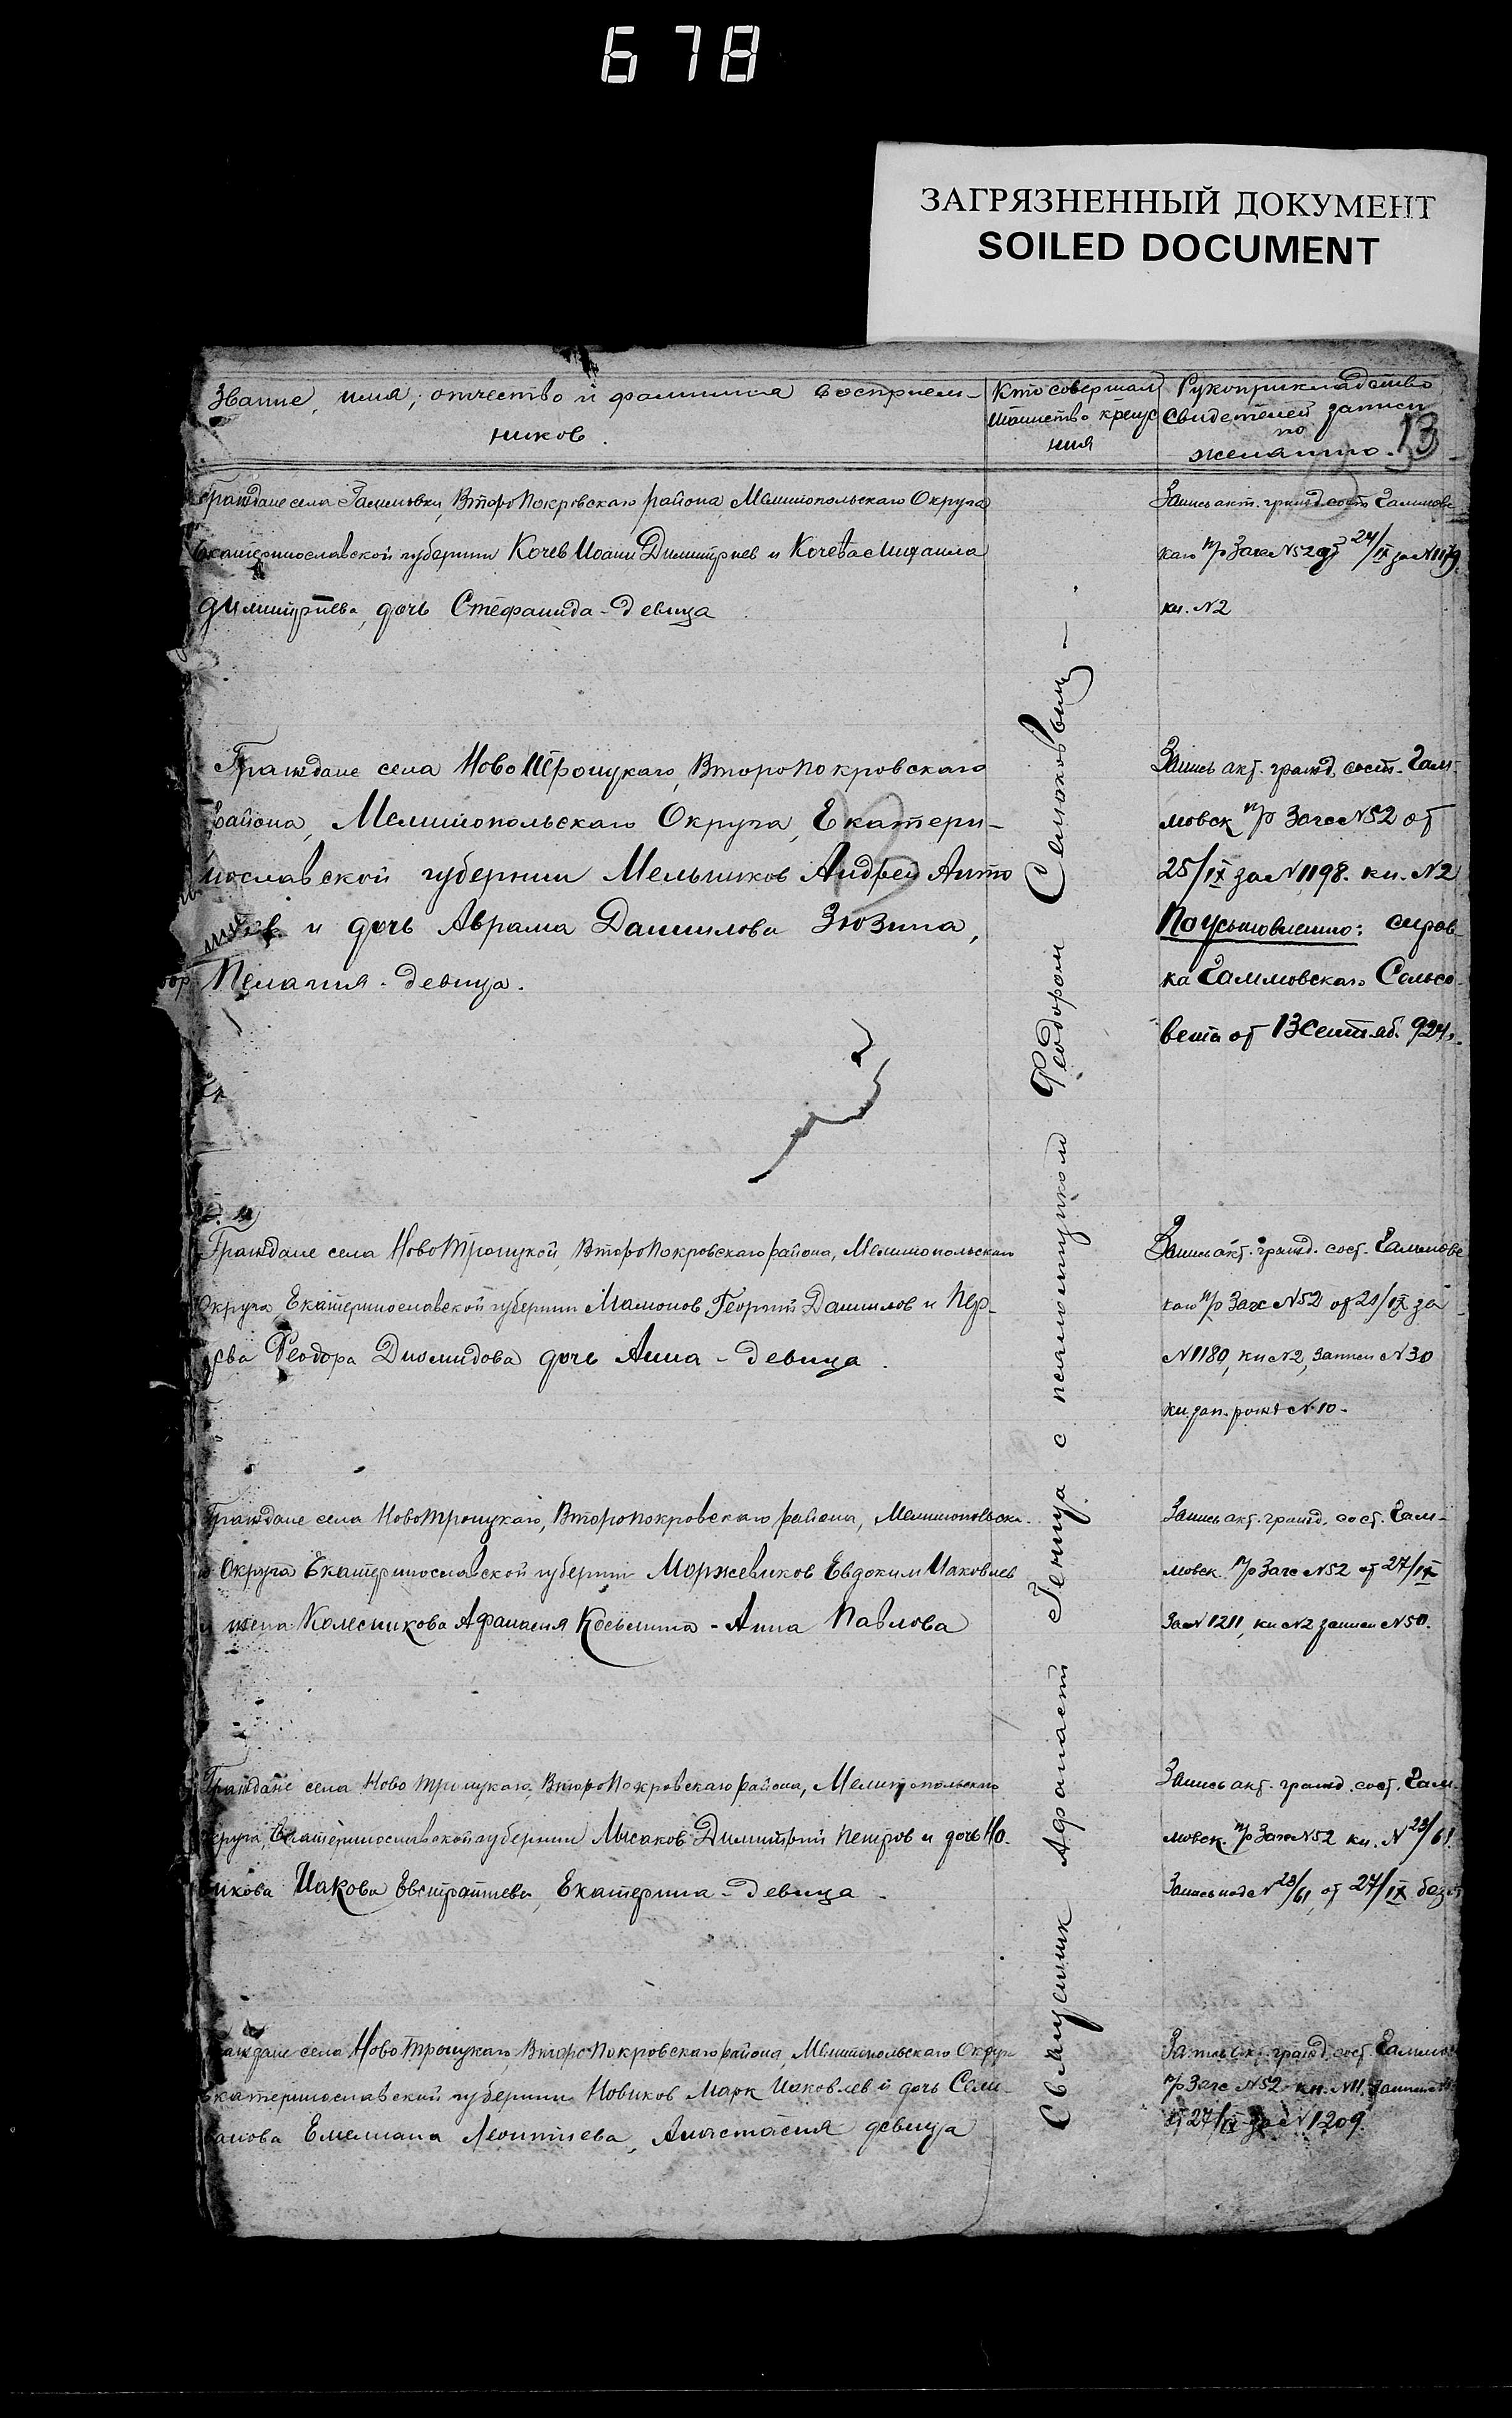 678
ЗАГРЯЗНЕННЫЙ ДОКУМЕНТ
SOILED DOCUMENT
Звание, имя, отчество и фамилия восприем-
ников.
Кто совершал
таинство крещ
ния
Рукоприкладство
свидетелей записи
по
желанию.
13
Граждане села Второпокровскаго района Мелитопольскаго Округа
Екатеринославской губернии Кочев Иоанн Димитриев и Кочева Михаила
Димитриева, дочь Стефанида - девица
Запись акт. гражд. сост.
каго п/р Загс N52 от 24/IX за N1179.
кн. N2
Граждане села Новотроицкаго, Второпокровскаго
района, Мелитопольскаго Округа, Екатери-
нославской губернии Мельников Андрей Анто
и дочь Аврама Даниилова Зюзина,
Пелагия - девица.
Запись акт. гражд. сост.
мовск п/р Загс N52 от
25/IX за N1198. кн. N2
По усыновлению: справ-
ка Сельсо-
вета от 13 Сентяб. 924 г.
Граждане села Новотроицкой, Второпокровскаго района, Мелитопольскаго
Округа Екатеринославской губернии Мамонов Георгий Даниилов и
Феодора Диомидова дочь Анна - девица.
Запись акт. гражд. сост.
каго п/р Загс N52 от /IX за
N1180, кн N2, записи N30
кн. зап. рожд N10.
Граждане села Новотроицкаго, Второпокровскаго района, Мелитопольска-
го Округа Екатеринославской губернии Моржевиков Евдоким Иаковлев
и жена Колесникова Афанасия Косьмина - Анна Павлова
Запись акт. гражд. сост.
мовск. п/р Загс N52 от 27/IX
За N1211, кн N2 записи N50.
Граждане села Новотроицкаго, Второпокровскаго района, Мелитопольскаго
Округа, Екатеринославской губернии Лысаков Димитрий Петров и дочь Но-
викова Иакова Евстратиева, Екатерина - девица.
Запись акт. гражд. сост.
мовск. п/р Загс N52 кн. N 23/61.
Запись под N 23/61, от 27/IX без
Граждане села Новотроицкаго, Второпокровскаго района, Мелитопольскаго Округа
Екатеринославской губернии Новиков Марк Иаковлев и дочь Сели-
ванова Емелиана Леонтиева, Анастасия девица
гражд. сост.
п/р Загс N52 кн. N11,
от 27/IX за N1209.
Священник Афанасий Геница с псаломщиком Феодором Сенюковым -